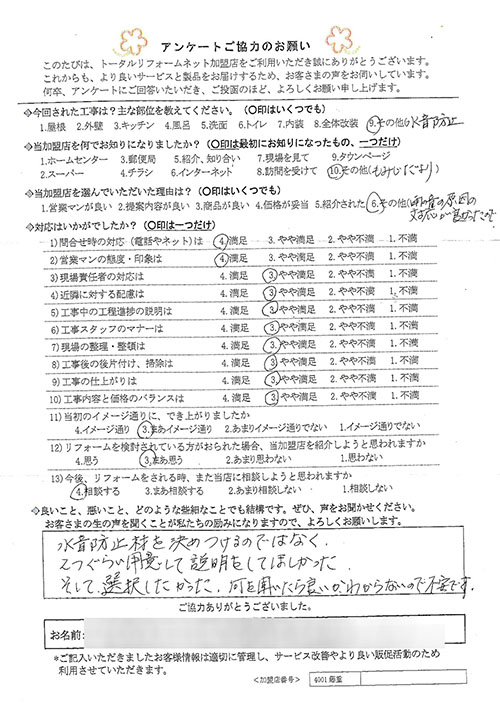 アンケートご協力のお願い
このたびは、トータルリフォームネット加盟店をご利用いただき誠にありがとうございます。
これからも、より良いサービスと製品をお届けするため、お客さまの声をお伺いしています。
何卒、アンケートにご回答いただき、ご投函のほど、よろしくお願い申し上げます。
◇今回された工事は?主な部位を教えてください。(〇印はいくつでも)
1.屋根 2.外壁 3.キッチン 4.風呂 5.洗面 6.トイレ 7.内装 8.全体改装 9.その他(水音防止
◇当加盟店を何でお知りになりましたか?(〇印は最初にお知りになったもの、一つだけ)
1.ホームセンター 3.郵便局 5.紹介、知り合い 7.現場を見て 9.タウンページ
2.スーパー 4.チラシ 6.インターネット 8.訪問を受けて 10.その他(
◇当加盟店を選んでいただいた理由は?(〇印はいくつでも)
1.営業マンが良い 2.提案内容が良い 3.商品が良い 4.価格が妥当 5.紹介された 6.その他(の原因の
対応が良かったので
◇対応はいかがでしたか?(〇印は一つだけ)
1)問合せ時の対応(電話やネット)は 4.満足 3.やや満足 2.やや不満 1.不満
2)営業マンの態度・印象は 4.満足 3.やや満足 2.やや不満 1.不満
3)現場責任者の対応は 4.満足 3.やや満足 2.やや不満 1.不満
4)近隣に対する配慮は 4.満足 3.やや満足 2.やや不満 1.不満
5)工事中の工程進捗の説明は 4.満足 3.やや満足 2.やや不満 1.不満
6)工事スタッフのマナーは 4.満足 3.やや満足 2.やや不満 1.不満
7)現場の整理・整頓は 4.満足 3.やや満足 2.やや不満 1.不満
8)工事後の後片付け、掃除は 4.満足 3.やや満足 2.やや不満 1.不満
9)工事の仕上がりは 4.満足 3.やや満足 2.やや不満 1.不満
10)工事内容と価格のバランスは 4.満足 3.やや満足 2.やや不満 1.不満
11)当初のイメージ通りに、でき上がりましたか
4.イメージ通り 3.まあイメージ通り 2.あまりイメージ通りでない 1.イメージ通りでない
12)リフォームを検討されている方がおられた場合、当加盟店を紹介しようと思われますか
4.思う 3.まあ思う 2.あまり思わない 1.思わない
13)今後、リフォームをされる時、また当店に相談しようと思われますか
4.相談する 3.まあ相談する 2.あまり相談しない 1.相談しない
◎良いこと、悪いこと、どのような些細なことでも結構です。ぜひ、声をお聞かせください。
お客さまの生の声を聞くことが私たちの励みになりますので、よろしくお願いします。
水音防止材を決めつけるのではなく、
2つぐらい用意して説明をしてほしかった
そして、選択したかった、何を用いたら良いかわからないので不安です。
ご協力ありがとうございました。
お名前:
*ご記入いただきましたお客様情報は適切に管理し、サービス改善やより良い販促活動のため
利用させていただきます。
<加盟店番号> 4001 毎室